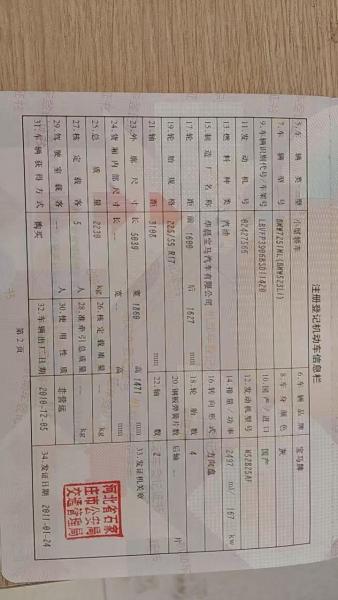 注册登记机动车信息栏
5.车辆类型 小型轿车 6.车辆品牌 宝马牌
7.车辆型号 BMW7251ML(BMW523Li) 8.车身颜色 灰
9.车辆识别代号/车架号 10.国产/进口 国产
11.发动机号 02427566 12.发动机型号 N52B25AF
13.燃料种类 汽油 14.排量/功率 2497 ml/ 167 kw
15.制造厂名称 华晨宝马汽车有限公司 16.转向形式 方向盘
17.轮距 前 1600 后 1627 mm 18.轮胎数 4
19.轮胎规格 225/55 R17 20.钢板弹簧片数 后轴 -- 片
21.轴距 3108 mm 22.轴数 2
23.外廓尺寸 长 5039 宽 1860 高 1471 mm 33.发证机关章
24.货箱内部尺寸 长 -- 宽 -- 高 -- mm
25.总质量 2230 kg 26.核定载质量 -- kg
27.核定载客 5 人 28.准牵引总质量 -- kg
29.驾驶室载客 -- 人 30.使用性质 非营运
31.车辆获得方式 购买 32.车辆出厂日期 2010-12-05 34.发证日期 2011-01-24
河北省石家
庄市公安局
交通管理局
第 2 页